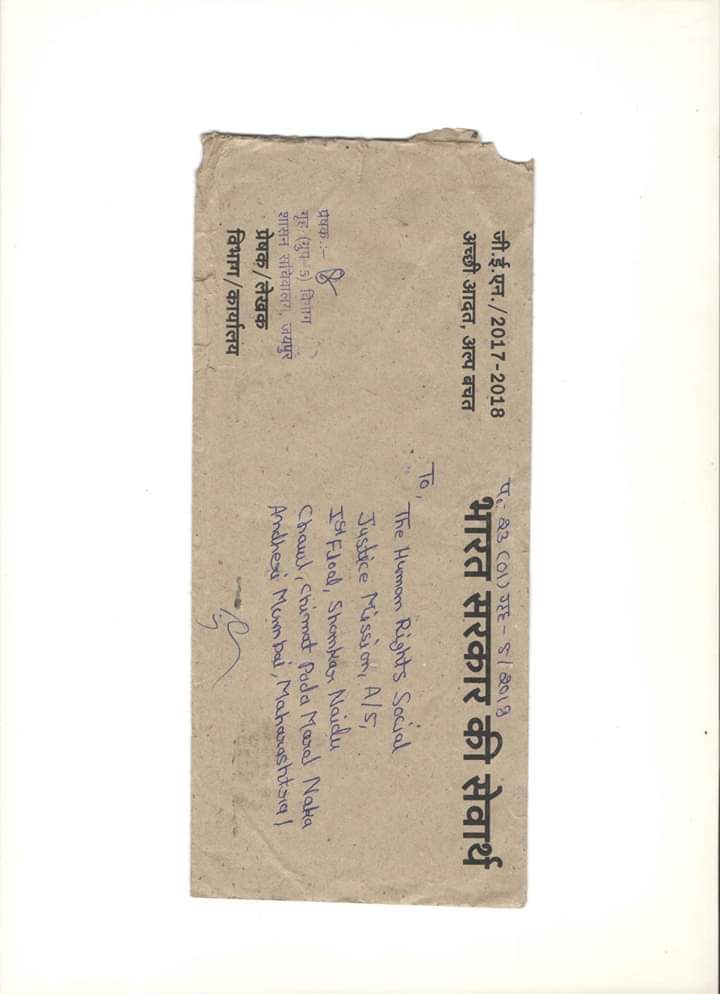 जी.ई.एन./2017-2018
अच्छी आदत, अल्प बचत
प. 23 (01) गृह - 5 / 2018
भारत सरकार की सेवार्थ
To,
The Human Rights Social
Justice Mission, A/5,
Ist Floor, Shankar Naidu
Chawl, Chimat Pada Marol Naka
Andheri Mumbai, Maharashtra
प्रेषक:-
गृह (ग्रुप-5) विभाग
शासन सचिवालय, जयपुर
प्रेषक/लेखक
विभाग/कार्यालय